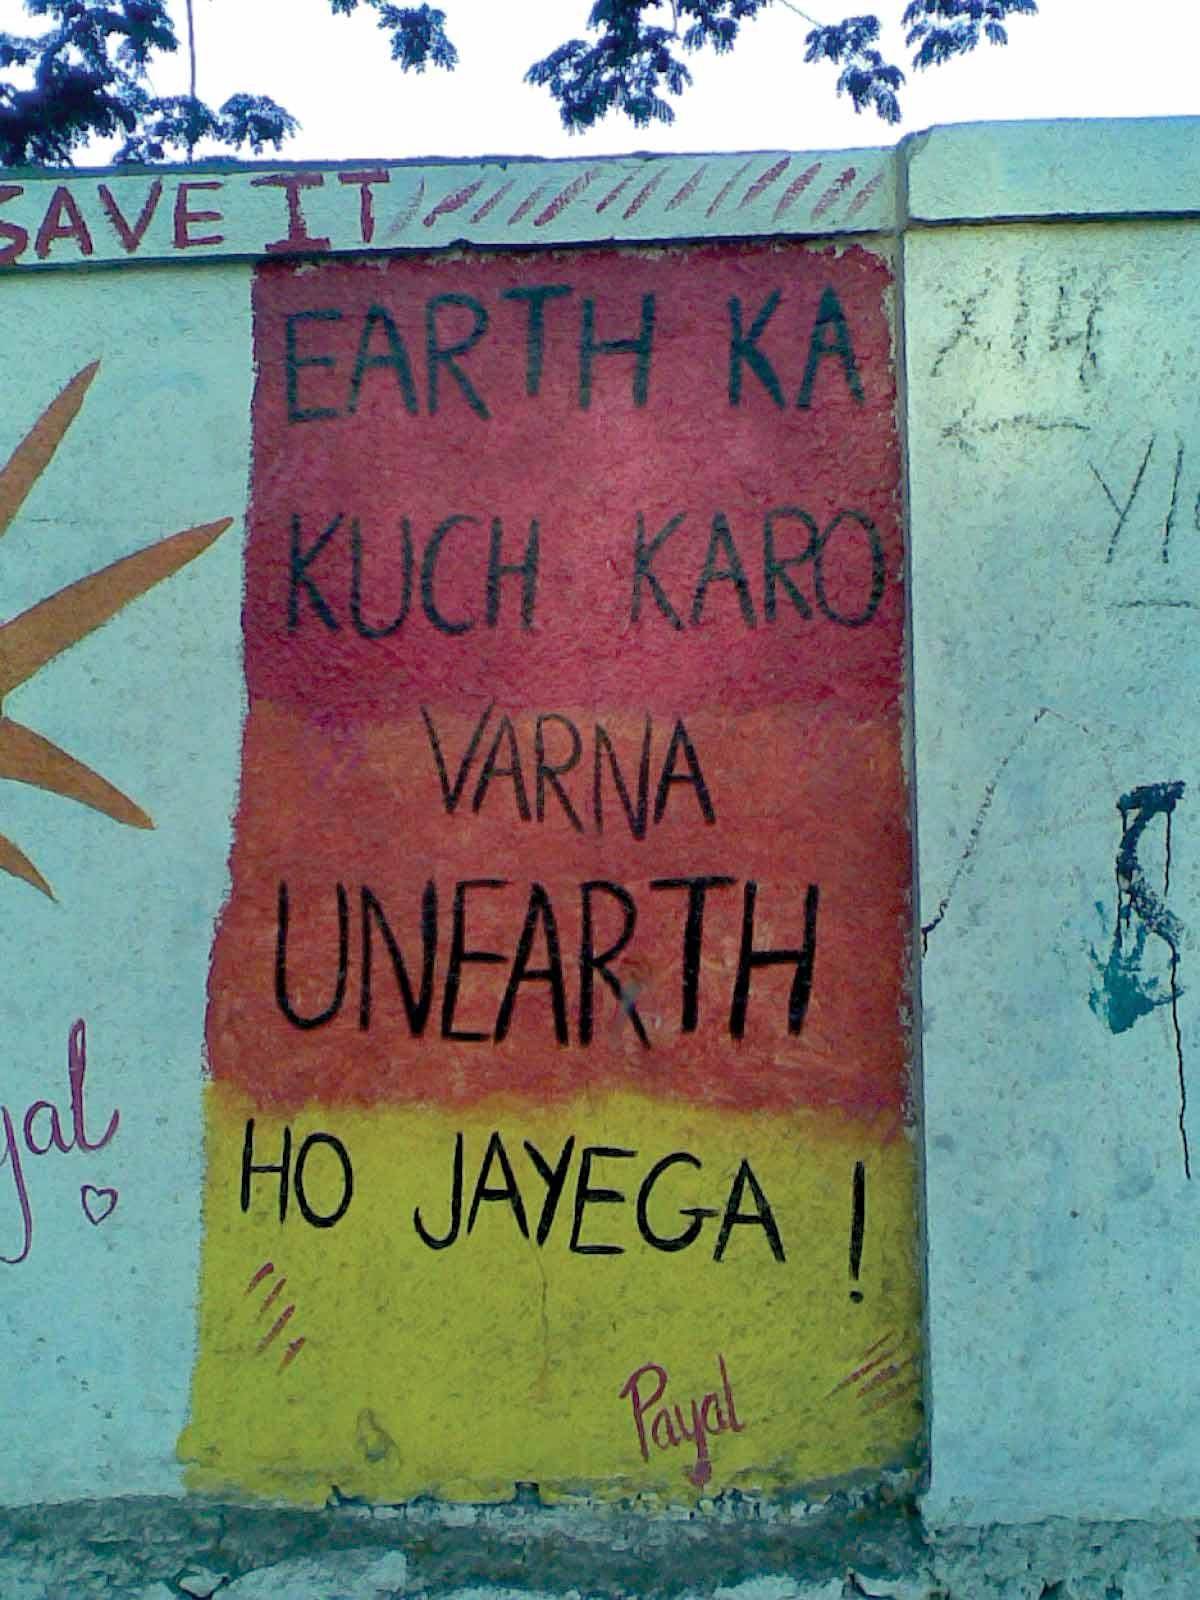 SAVE IT
EARTH KA
KUCH KARO
VARNA
UNEARTH
HO JAYEGA !
Payal